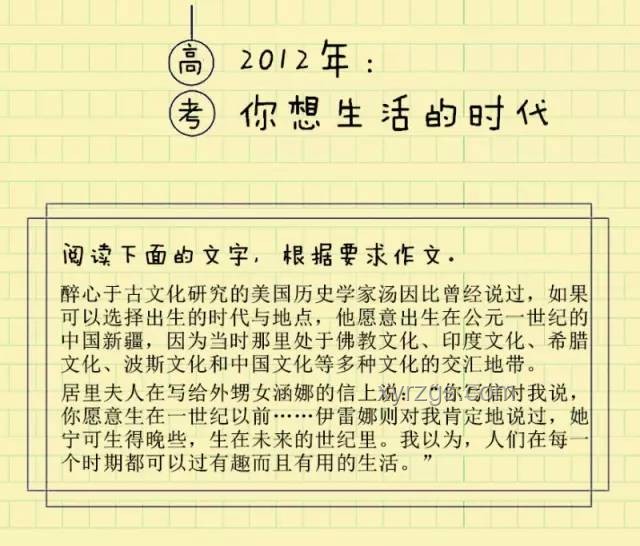 高考
2012年:
你想生活的时代
阅读下面的文字，根据要求作文。
醉心于古文化研究的美国历史学家汤因比曾经说过，如果
可以选择出生的时代与地点，他愿意出生在公元一世纪的
中国新疆，因为当时那里处于佛教文化、印度文化、希腊
文化、波斯文化和中国文化等多种文化的交汇地带。
居里夫人在写给外甥女涵娜的信上说：“你写信对我说，
你愿意生在一世纪以前……伊雷娜则对我肯定地说过，她
宁可生得晚些，生在未来的世纪里。我以为，人们在每一
个时期都可以过有趣而且有用的生活。”